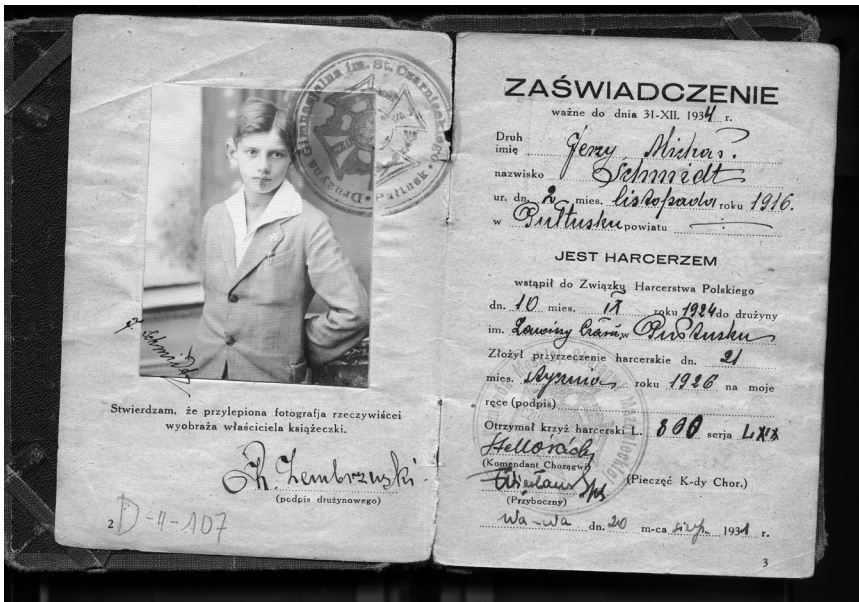 Drużyna Gimnazjalna im. St. Czarnieckiego
Pułtusk
J. Schmidt
Stwierdzam, że przylepiona fotografja rzeczywiścei
wyobraża właściciela książeczki.
Zembrzuski
(podpis drużynowego)
2 D-II-107
ZAŚWIADCZENIE
ważne do dnia 31-XII. 1934 r.
Druh
imię Jerzy Michał.
nazwisko Schmidt
ur. dn. 2 mies. listopada roku 1916.
w Pułtusku powiatu
JEST HARCERZEM
wstąpił do Związku Harcerstwa Polskiego
dn. 10 mies. IX roku 1924 do drużyny
im. w Pułtusku
Złożył przyrzeczenie harcerskie dn. 21
mies. stycznia roku 1926 na moje
ręce (podpis)
Otrzymał krzyż harcerski L. 800 serja LXIX
(Komendant Chorągwi)
(Pieczęć K-dy Chor.)
(Przyboczny)
Wa-wa dn. 20 m-ca sierp. 1931 r.
3